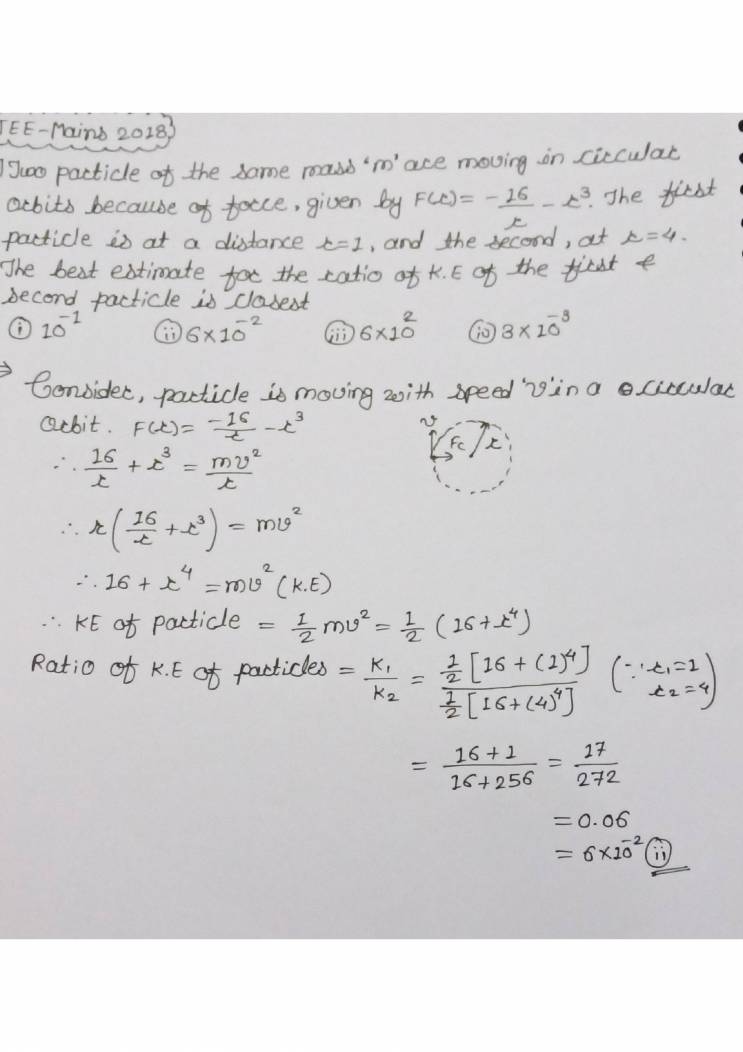 JEE-Mains 2018}
Two particle of the same mass 'm' are moving in circular
orbits because of force, given by F(r) = -16/r - r³. The first
particle is at a distance r=1, and the second, at r=4.
The best estimate for the ratio of K.E of the first &
second particle is closest
(i) 10⁻¹ (ii) 6×10⁻² (iii) 6×10² (iv) 3×10⁻³
→ Consider, particle is moving with speed 'v' in a circular
orbit. F(r) = -16/r - r³
v Fc r
∴ 16/r + r³ = mv²/r
∴ r(16/r + r³) = mv²
∴ 16 + r⁴ = mv² (K.E)
∴ KE of particle = 1/2 mv² = 1/2 (16+r⁴)
Ratio of K.E of particles = K₁/K₂ = 1/2[16+(1)⁴] / 1/2[16+(4)⁴] (∵ r₁=1
r₂=4)
= 16+1/16+256 = 17/272
= 0.06
= 6×10⁻² (ii)